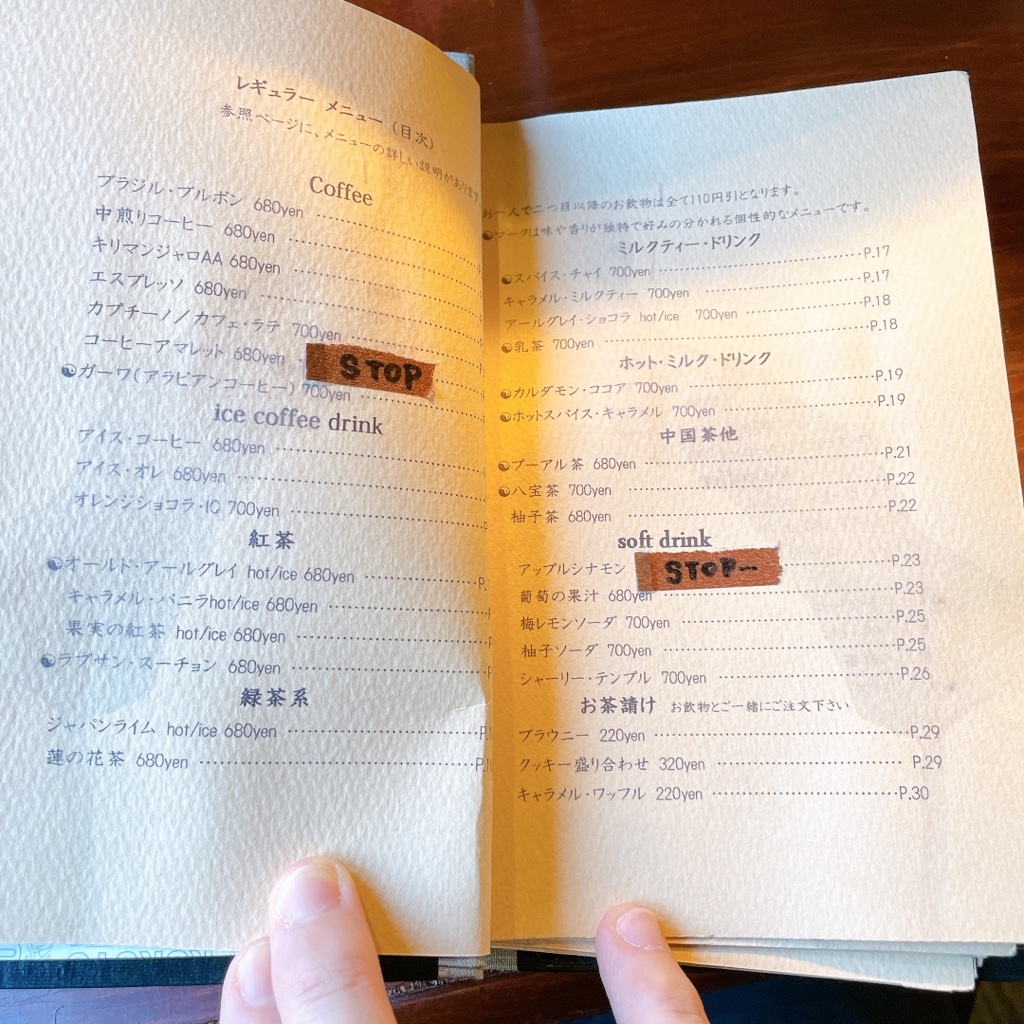 レギュラー メニュー (目次)
参照ページに、メニューの詳しい説明があります
Coffee
ブラジル・ブルボン 680yen
中煎りコーヒー 680yen
キリマンジャロAA 680yen
エスプレッソ 680yen
カプチーノ／カフェ・ラテ 700yen
コーヒーアマレット 680yen
STOP
☯ガーワ(アラビアンコーヒー) 700yen
ice coffee drink
アイス・コーヒー 680yen
アイス・オレ 680yen
オレンジショコラ・IC 700yen
紅茶
☯オールド・アールグレイ hot/ice 680yen ……P.
キャラメル・バニラhot/ice 680yen
果実の紅茶 hot/ice 680yen
☯ラプサン・スーチョン 680yen
緑茶系
ジャパンライム hot/ice 680yen ……P.
蓮の花茶 680yen ……P.
お一人で二つ目以降のお飲物は全て110円引となります。
☯マークは味や香りが独特で好みの分かれる個性的なメニューです。
ミルクティー・ドリンク
☯スパイス・チャイ 700yen ……P.17
キャラメル・ミルクティー 700yen ……P.17
アールグレイ・ショコラ hot/ice 700yen ……P.18
☯乳茶 700yen ……P.18
ホット・ミルク・ドリンク
☯カルダモン・ココア 700yen ……P.19
☯ホットスパイス・キャラメル 700yen ……P.19
中国茶他
☯プーアル茶 680yen ……P.21
☯八宝茶 700yen ……P.22
柚子茶 680yen ……P.22
soft drink
アップルシナモン STOP ……P.23
葡萄の果汁 680yen ……P.23
梅レモンソーダ 700yen ……P.25
柚子ソーダ 700yen ……P.25
シャーリー・テンプル 700yen ……P.26
お茶請け お飲物とご一緒にご注文下さい
ブラウニー 220yen ……P.29
クッキー盛り合わせ 320yen ……P.29
キャラメル・ワッフル 220yen ……P.30